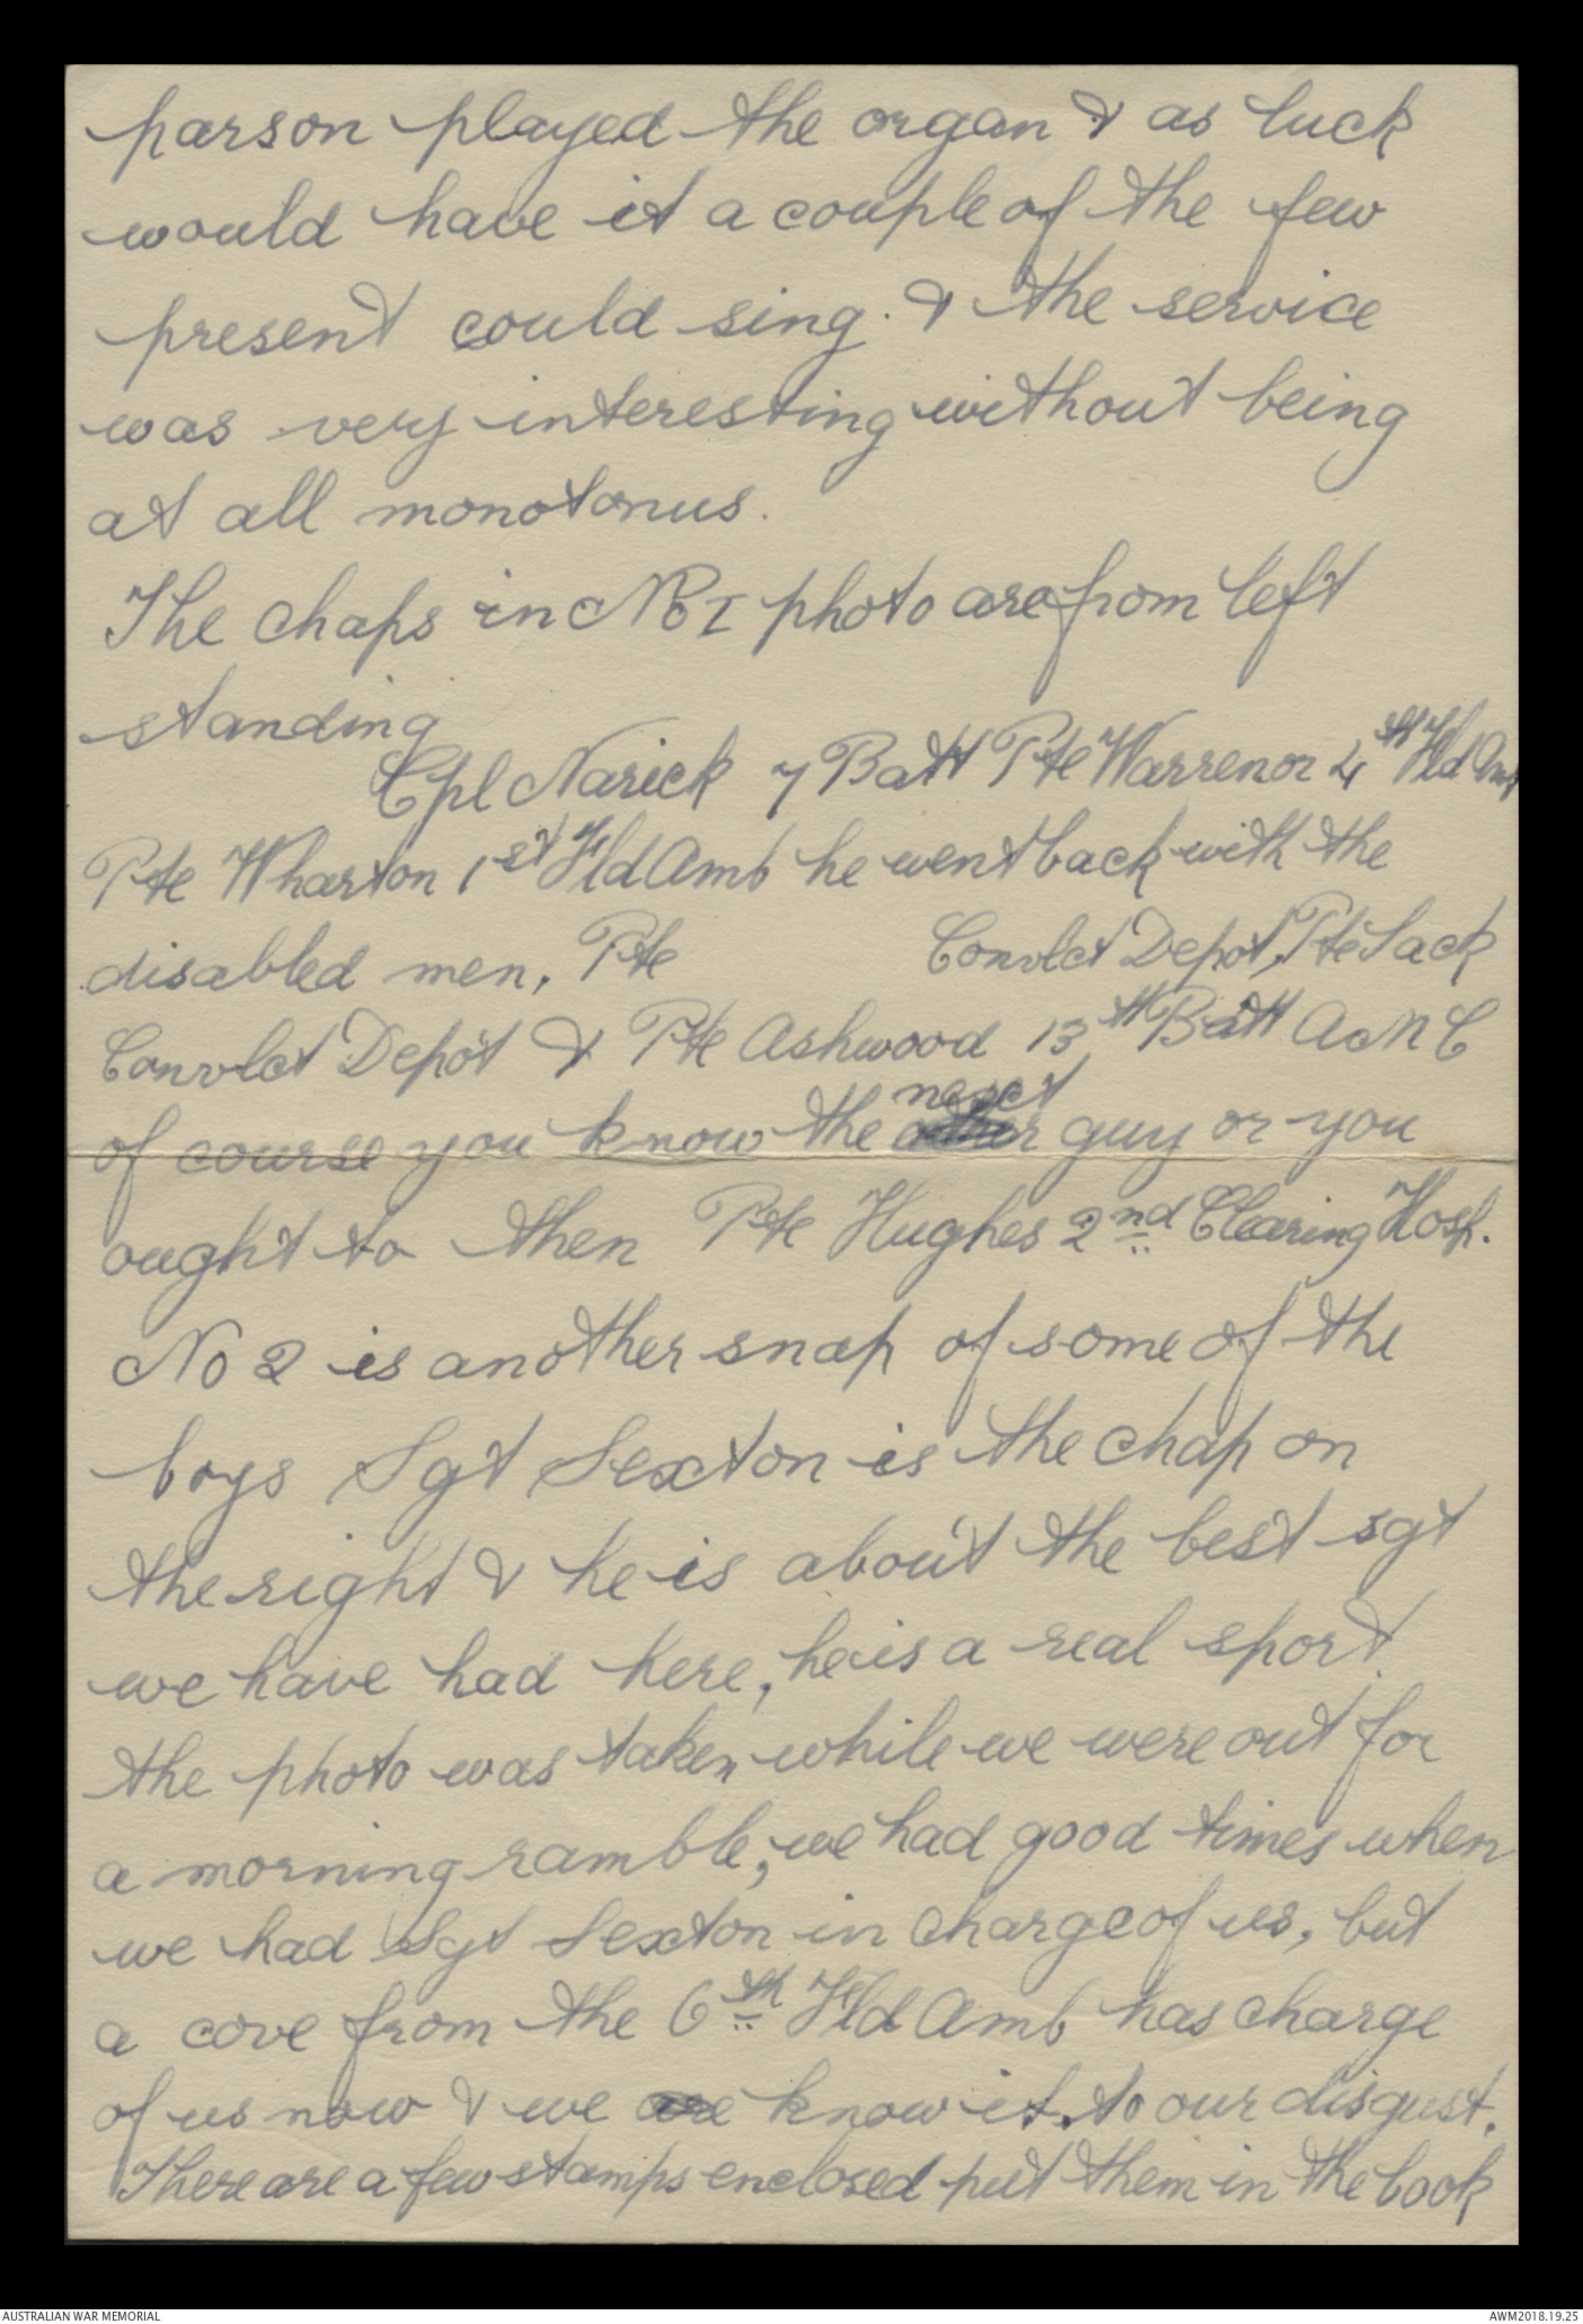 parson played the organ & as luck
would have it a couple of the few
present could sing. & the service
was very interesting without being
at all monotonus.
The chaps in No I photo are from left
standing
Cpl Narick 7 Batt Pte Warrenor 4th Fld Amb
Pte Wharton 1st Fld Amb he went back with the
disabled men, Pte Convlct Depot, Pte Sack
Convlct Depot & Pte Ashwood 13th Batt AMC
next
of course you know the other guy or you
ought to then Pte Hughes 2nd Clearing Hosp.
No 2 is another snap of some of the
boys Sgt Sexton is the chap on
the right & he is about the best sgt
we have had here, he is a real sport.
the photo was taken while we were out for
a morning ramble, we had good times when
we had Sgt Sexton in charge of us, but
a cove from the 6th Fld Amb has charge
of us now & we are know it. to our disgust.
There are a few stamps enclosed put them in the book
AUSTRALIAN WAR MEMORIAL
AWM2018.19.25